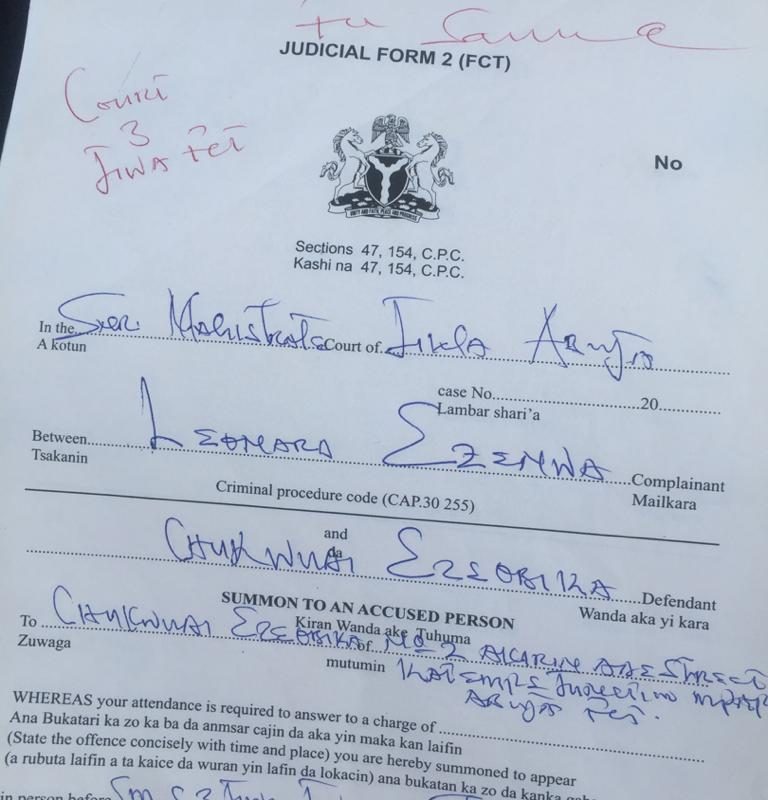 JUDICIAL FORM 2 (FCT)
Court
3
Jiwa Fct
No
Sections 47, 154, C.P.C.
Kashi na 47, 154, C.P.C.
In the Snr. Magistrate Court of Jiwa Abuja
A kotun
case No....................20............
Lambar shari'a
Between Leonard Ezenwa Complainant
Tsakanin Mailkara
Criminal procedure code (CAP.30 255)
and
da
Chukwudi Ezeobika Defendant
Wanda aka yi kara
SUMMON TO AN ACCUSED PERSON
Kiran Wanda ake Tuhuma
To Chukwudi Ezeobika No 2 of Street
Zuwaga
mutumin Junction
Abuja Fct.
WHEREAS your attendance is required to answer to a charge of
Ana Bukatari ka zo ka ba da anmsar cajin da aka yin maka kan laifin
(State the offence concisely with time and place) you are hereby summoned to appear
(a rubuta laifin a ta kaice da wuran yin lafin da lokacin) ana bukatan ka zo da kanka
in person before